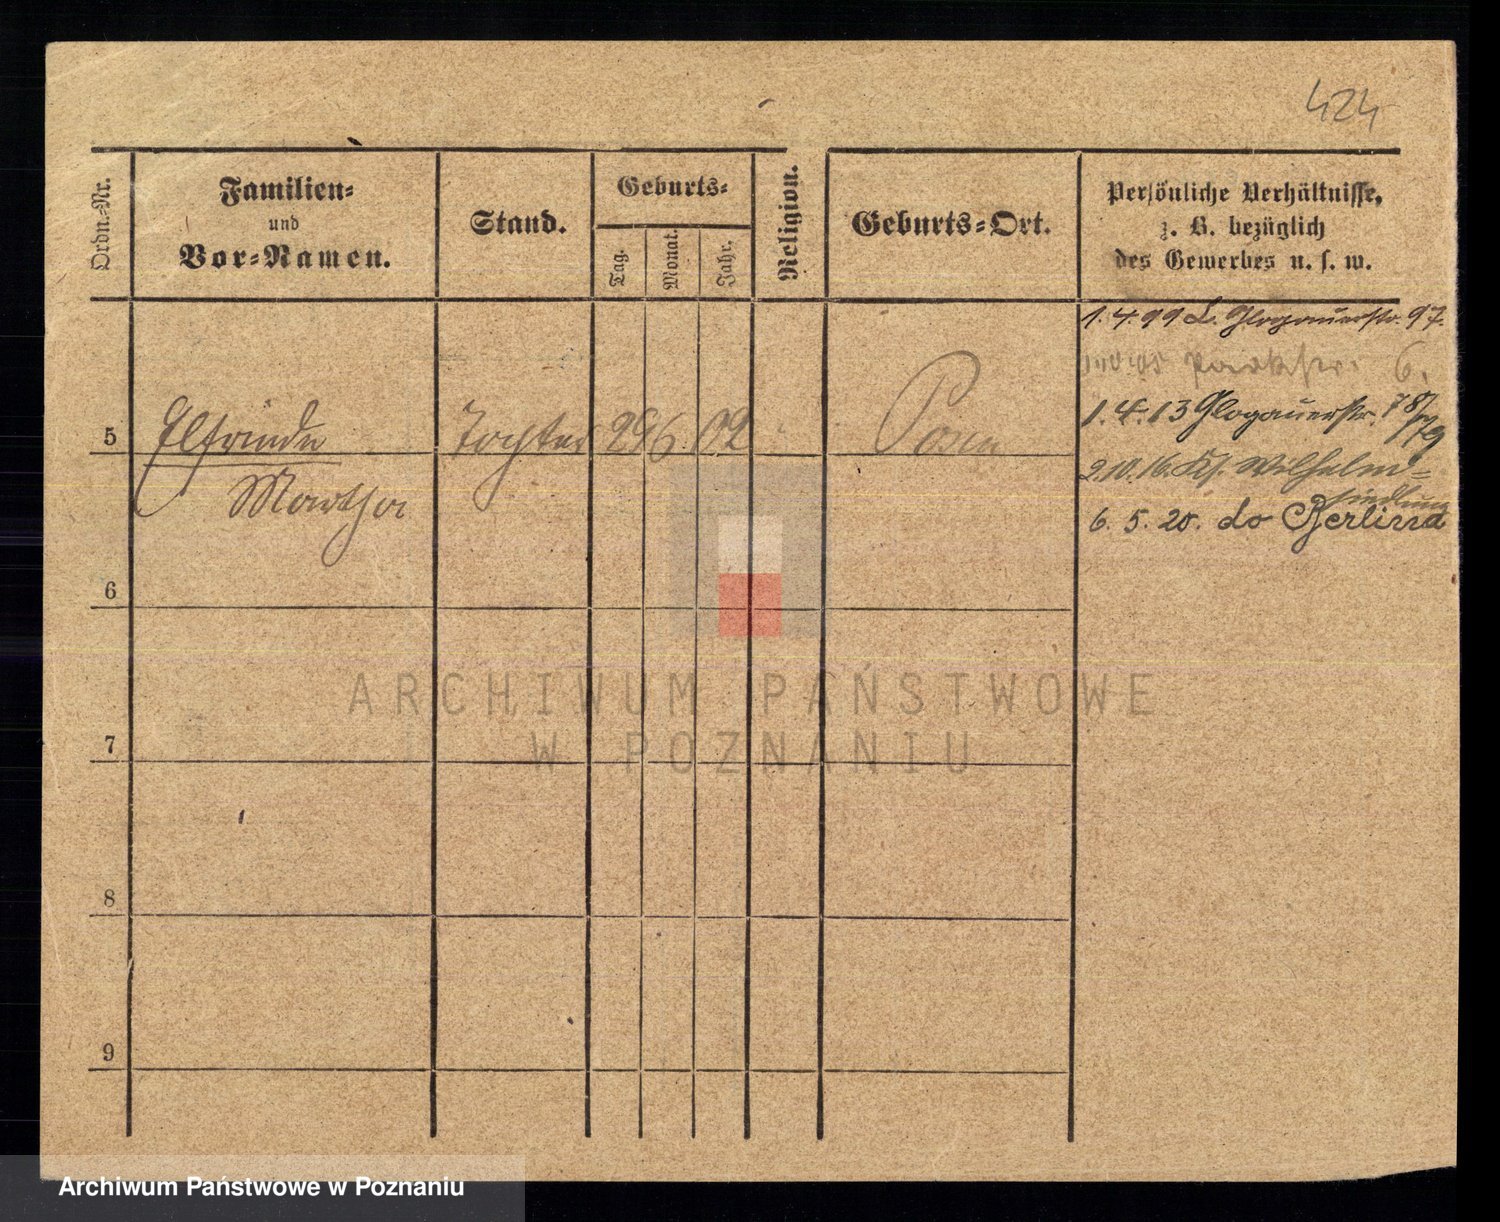 424
Ordn.-Nr.
Familien-
und
Vor-Namen.
Stand.
Geburts-
Tag.
Monat.
Jahr.
Religion.
Geburts-Ort.
Persönliche Verhältnisse,
z. B. bezüglich
des Gewerbes u. s. w.
1. 4. 99 L. Glogauerstr. 97.
Parkstr. 6.
1. 4. 13 Glogauerstr. 78/79
5 Elfriede Tochter 29 6. 02 Posen
Martha
2. 10. 16. Wilhelm-
siedlung
6. 5. 20. do Berlina
6
7
8
9
ARCHIWUM PAŃSTWOWE
W POZNANIU
Archiwum Państwowe w Poznaniu